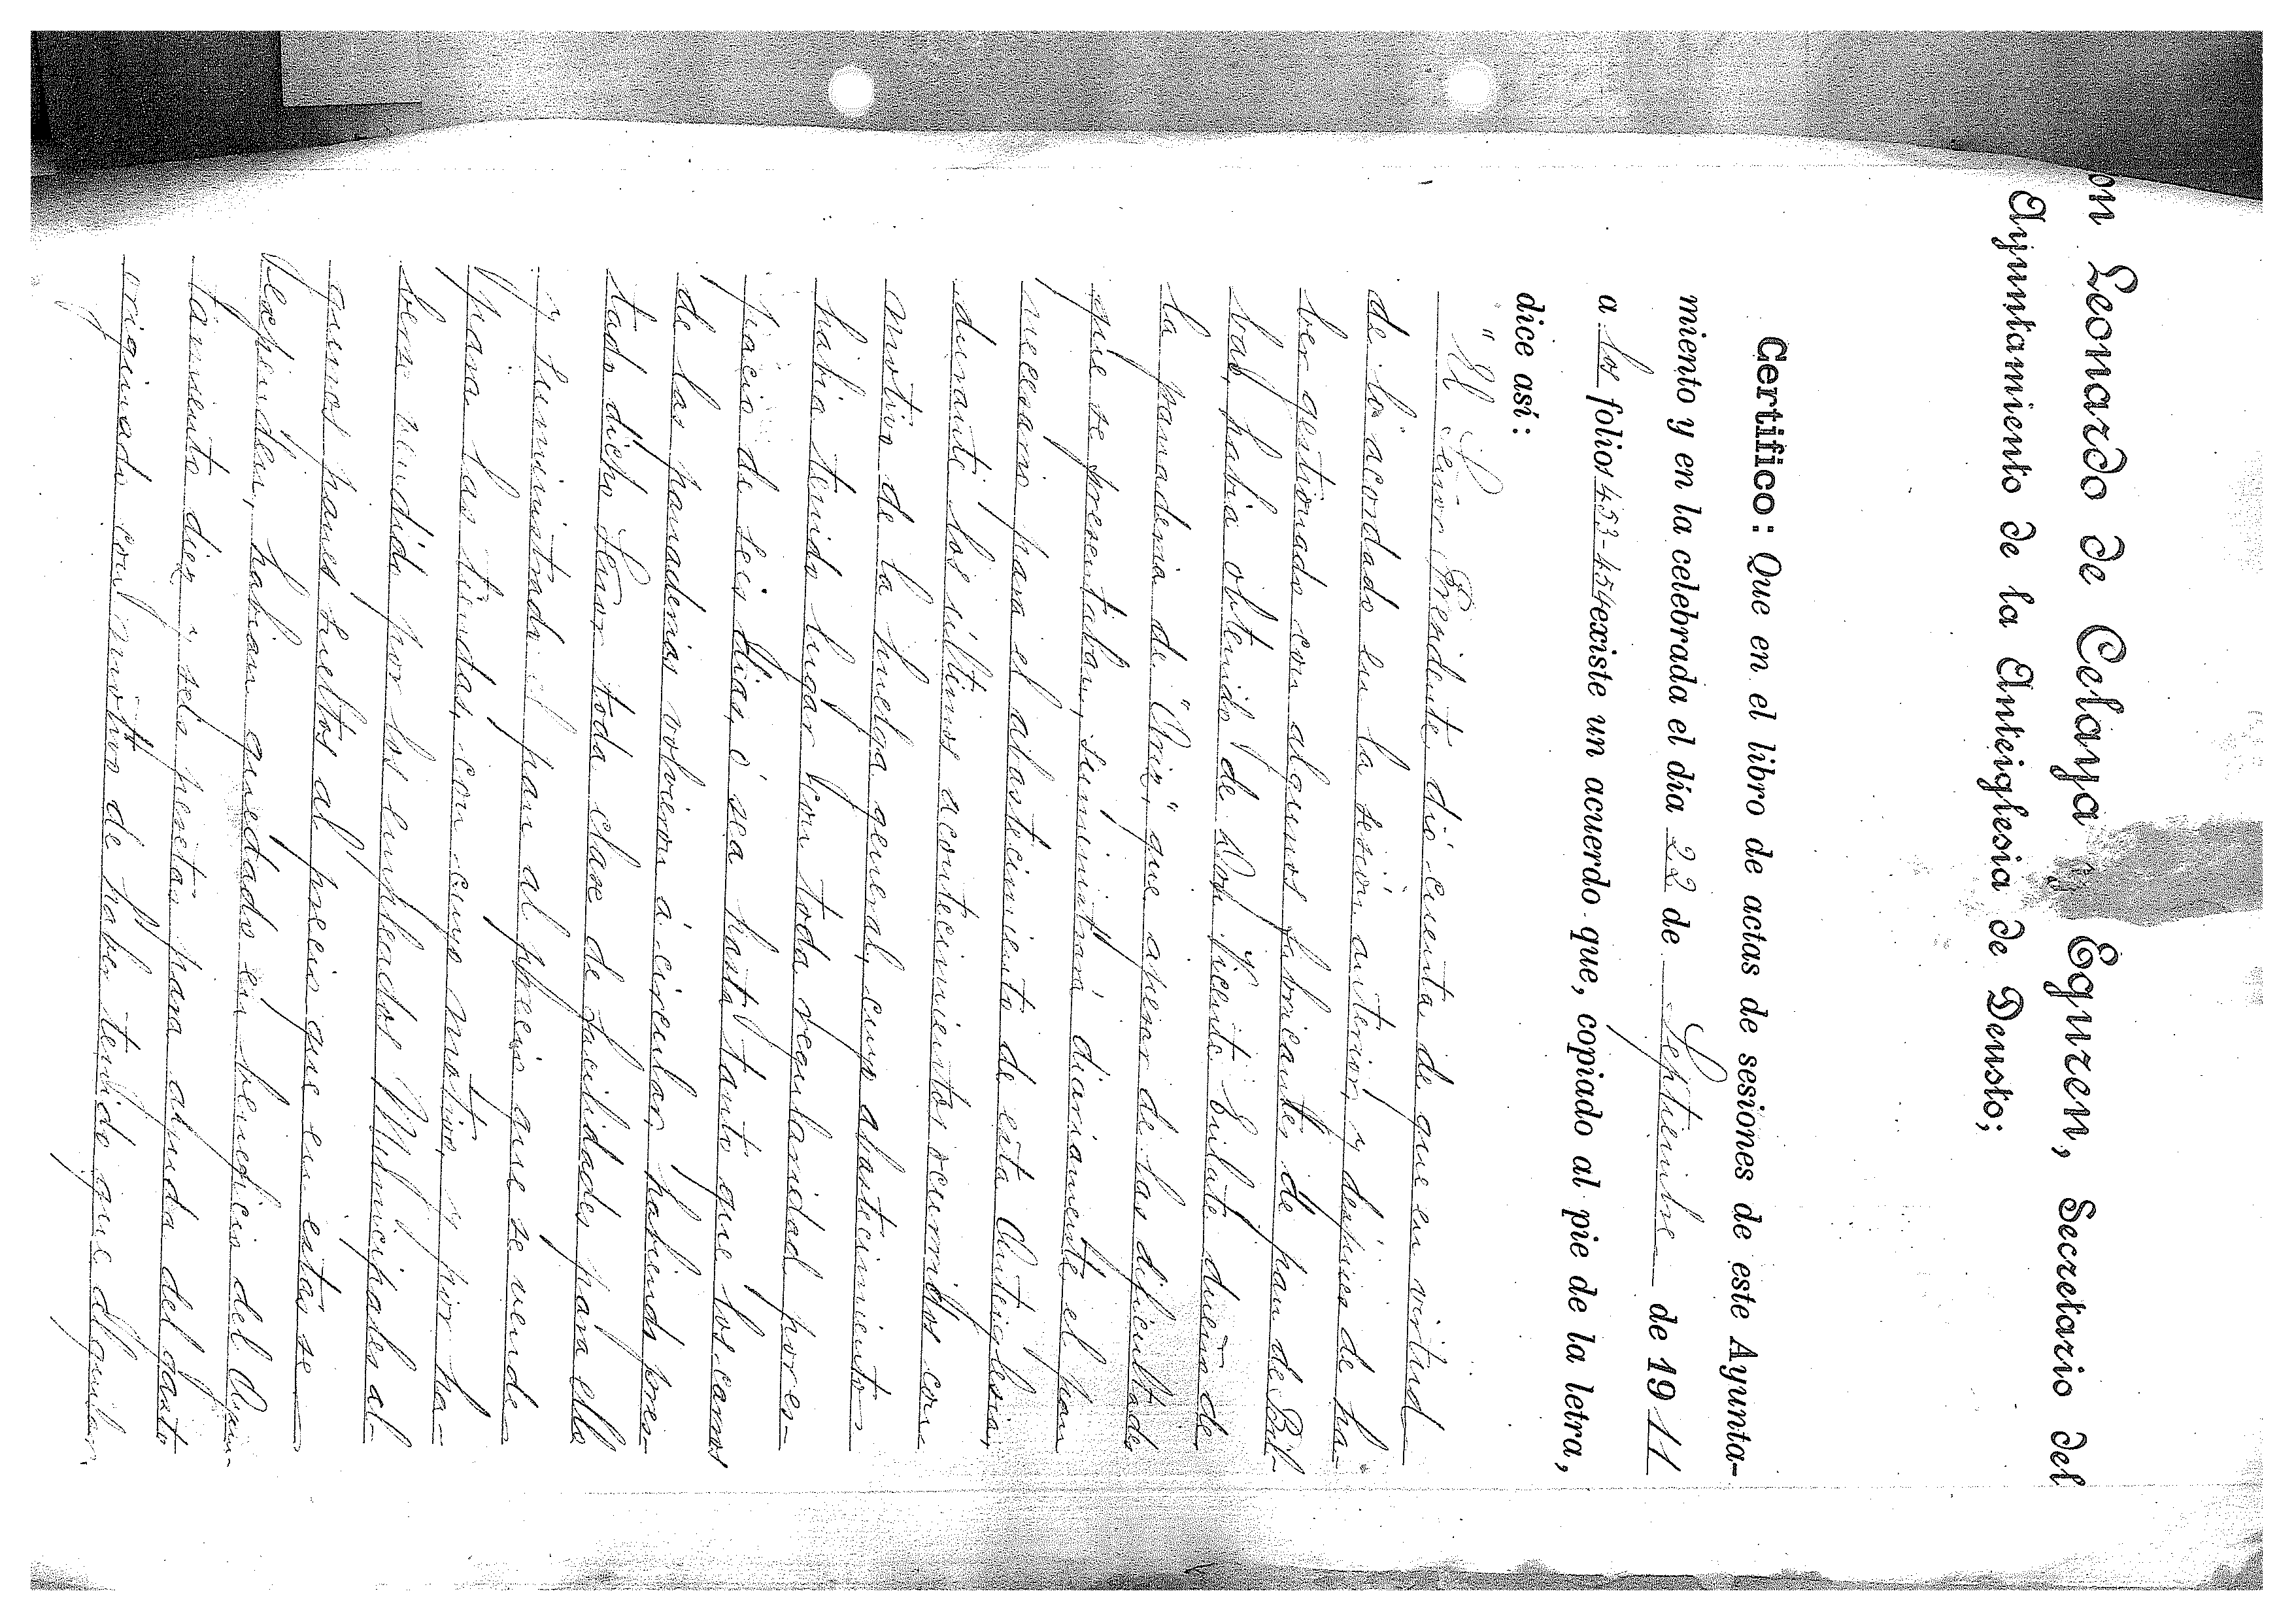 on Leonardo de Celaya y Eguren, Secretario del
Ayuntamiento de la Anteiglesia de Deusto;
Certifico: Que en el libro de actas de sesiones de este Ayunta-
miento y en la celebrada el día 22 de Septiembre de 1911
a los folios 453-454 existe un acuerdo que, copiado al pie de la letra,
dice así:
"El Señor Presidente dió cuenta de que en virtud
de lo acordado en la sesión anterior, y después de ha-
ber gestionado con algunos fabricantes de pan de Bil-
bao, había obtenido de Don Vicente dueño de
la panadería de "Ariz," que apesar de las dificultades
que se presentaban, suministrará diariamente el pan
necesario para el abastecimiento de esta Anteiglesia,
durante los últimos acontecimientos ocurridos con
motivo de la huelga general, cuyo abastecimiento
había tenido lugar con toda regularidad por es-
pacio de seis días, ó sea hasta tanto que los carros
de las panaderías volvieron á circular, habiendo pres-
tado dicho Señor toda clase de facilidades para ello
y suministrado el pan al precio que se vende
para las tiendas, con cuyo motivo, y por ha-
berse vendido por los empleados Municipales al-
gunos panes sueltos al precio que en éstas se
expenden, habían quedado en beneficio del Ayun-
tamiento diez y seis pesetas para ayuda del gasto
originado con motivo de haber tenido que alquilar